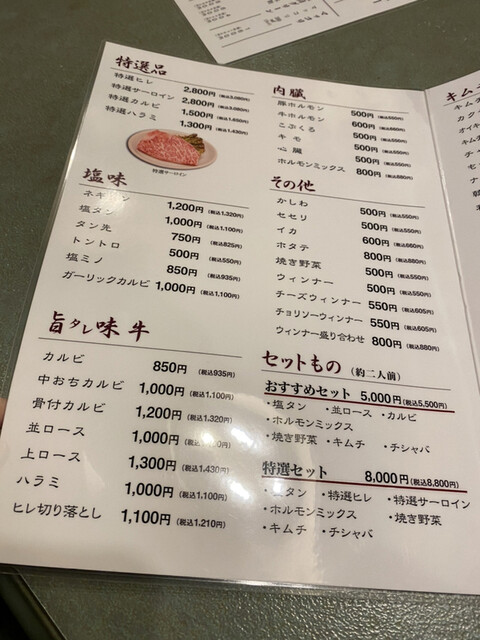 特選品
特選ヒレ 2,800円(税込3,080円)
特選サーロイン 2,800円(税込3,080円)
特選カルビ 1,500円(税込1,650円)
特選ハラミ 1,300円(税込1,430円)
特選サーロイン
塩味
ネギタン 1,200円(税込1,320円)
塩タン 1,000円(税込1,100円)
タン先 750円(税込825円)
トントロ 500円(税込550円)
塩ミノ 850円(税込935円)
ガーリックカルビ 1,000円(税込1,100円)
旨タレ味 牛
カルビ 850円(税込935円)
中おちカルビ 1,000円(税込1,100円)
骨付カルビ 1,200円(税込1,320円)
並ロース 1,000円
上ロース 1,300円(税込1,430円)
ハラミ 1,000円(税込1,100円)
ヒレ切り落とし 1,100円(税込1,210円)
内臓
豚ホルモン 500円(税込550円)
牛ホルモン 600円(税込660円)
こぶくる 500円(税込550円)
キモ 500円(税込550円)
心臓 500円(税込550円)
ホルモンミックス 800円(税込880円)
その他
かしわ 500円(税込550円)
セセリ 500円(税込550円)
イカ 600円(税込660円)
ホタテ 500円(税込550円)
焼き野菜 500円(税込550円)
ウィンナー 500円(税込550円)
チーズウィンナー 550円(税込605円)
チョリソーウィンナー 550円(税込605円)
ウィンナー盛り合わせ 800円(税込880円)
セットもの (約二人前)
おすすめセット 5,000円(税込5,500円)
・塩タン ・並ロース ・カルビ
・ホルモンミックス
・焼き野菜 ・キムチ ・チシャバ
特選セット 8,000円(税込8,800円)
タン ・特選ヒレ ・特選サーロイン
・ホルモンミックス ・焼き野菜
・キムチ ・チシャバ
キム